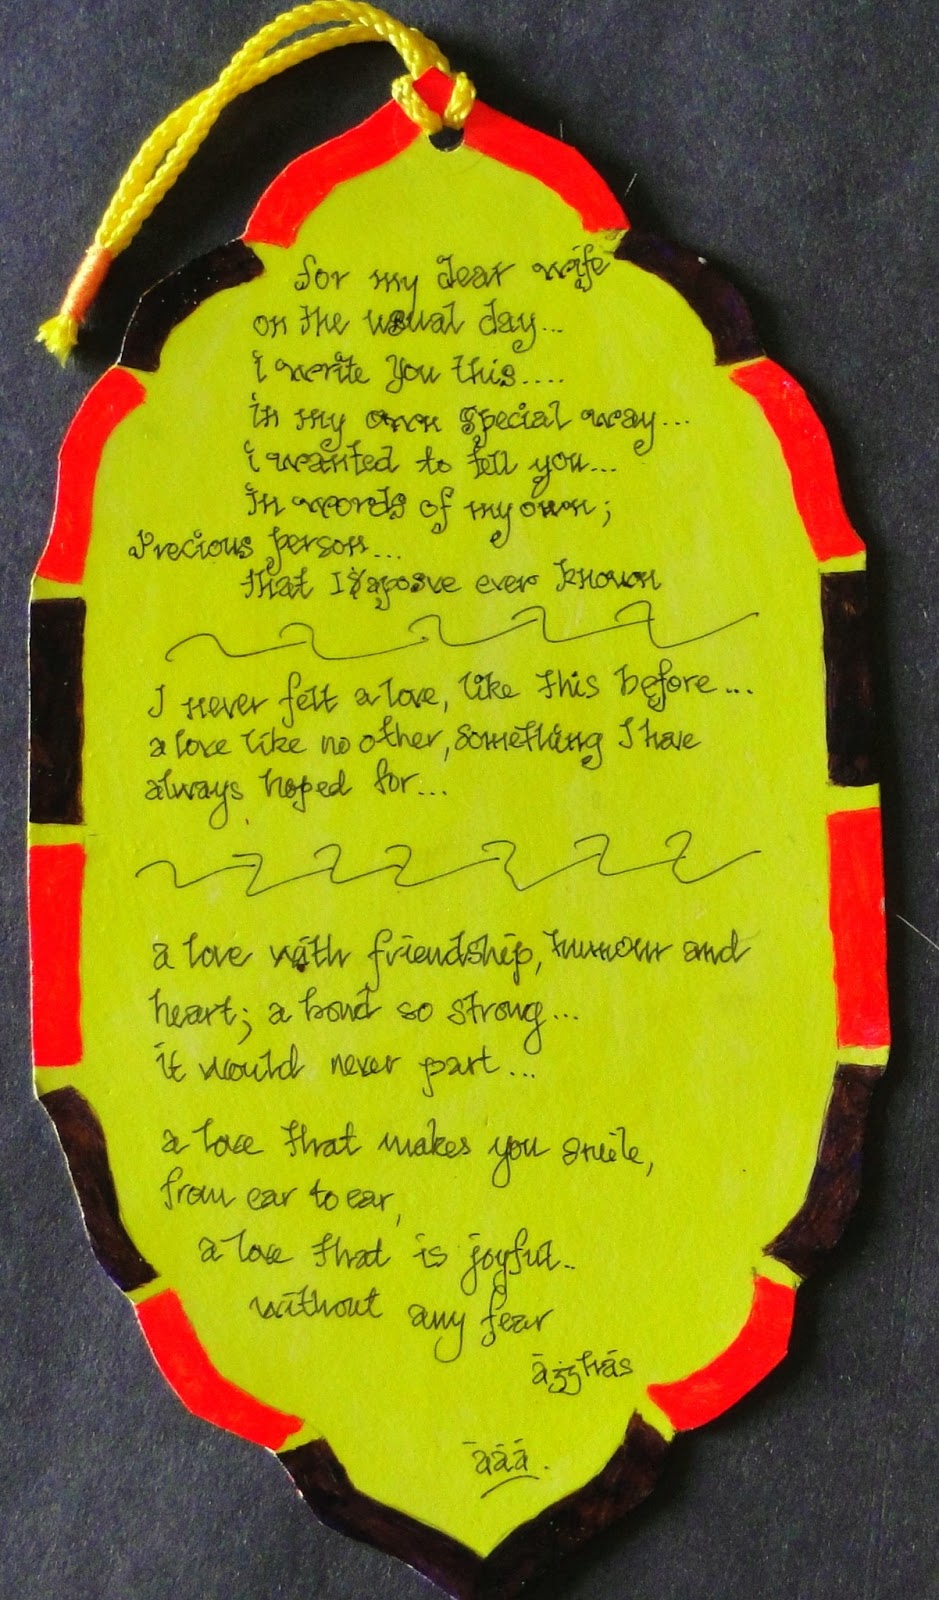 for my dear wife
on the usual day...
i write you this....
in my own special way...
i wanted to tell you...
in words of my own;
Precious person...
that I ever known
I never felt a love, like this before...
a love like no other, something I have
always hoped for...
a love with friendship, humour and
heart; a bond so strong...
it would never part...
a love that makes you smile,
from ear to ear,
a love that is joyful..
without any fear
ààà.